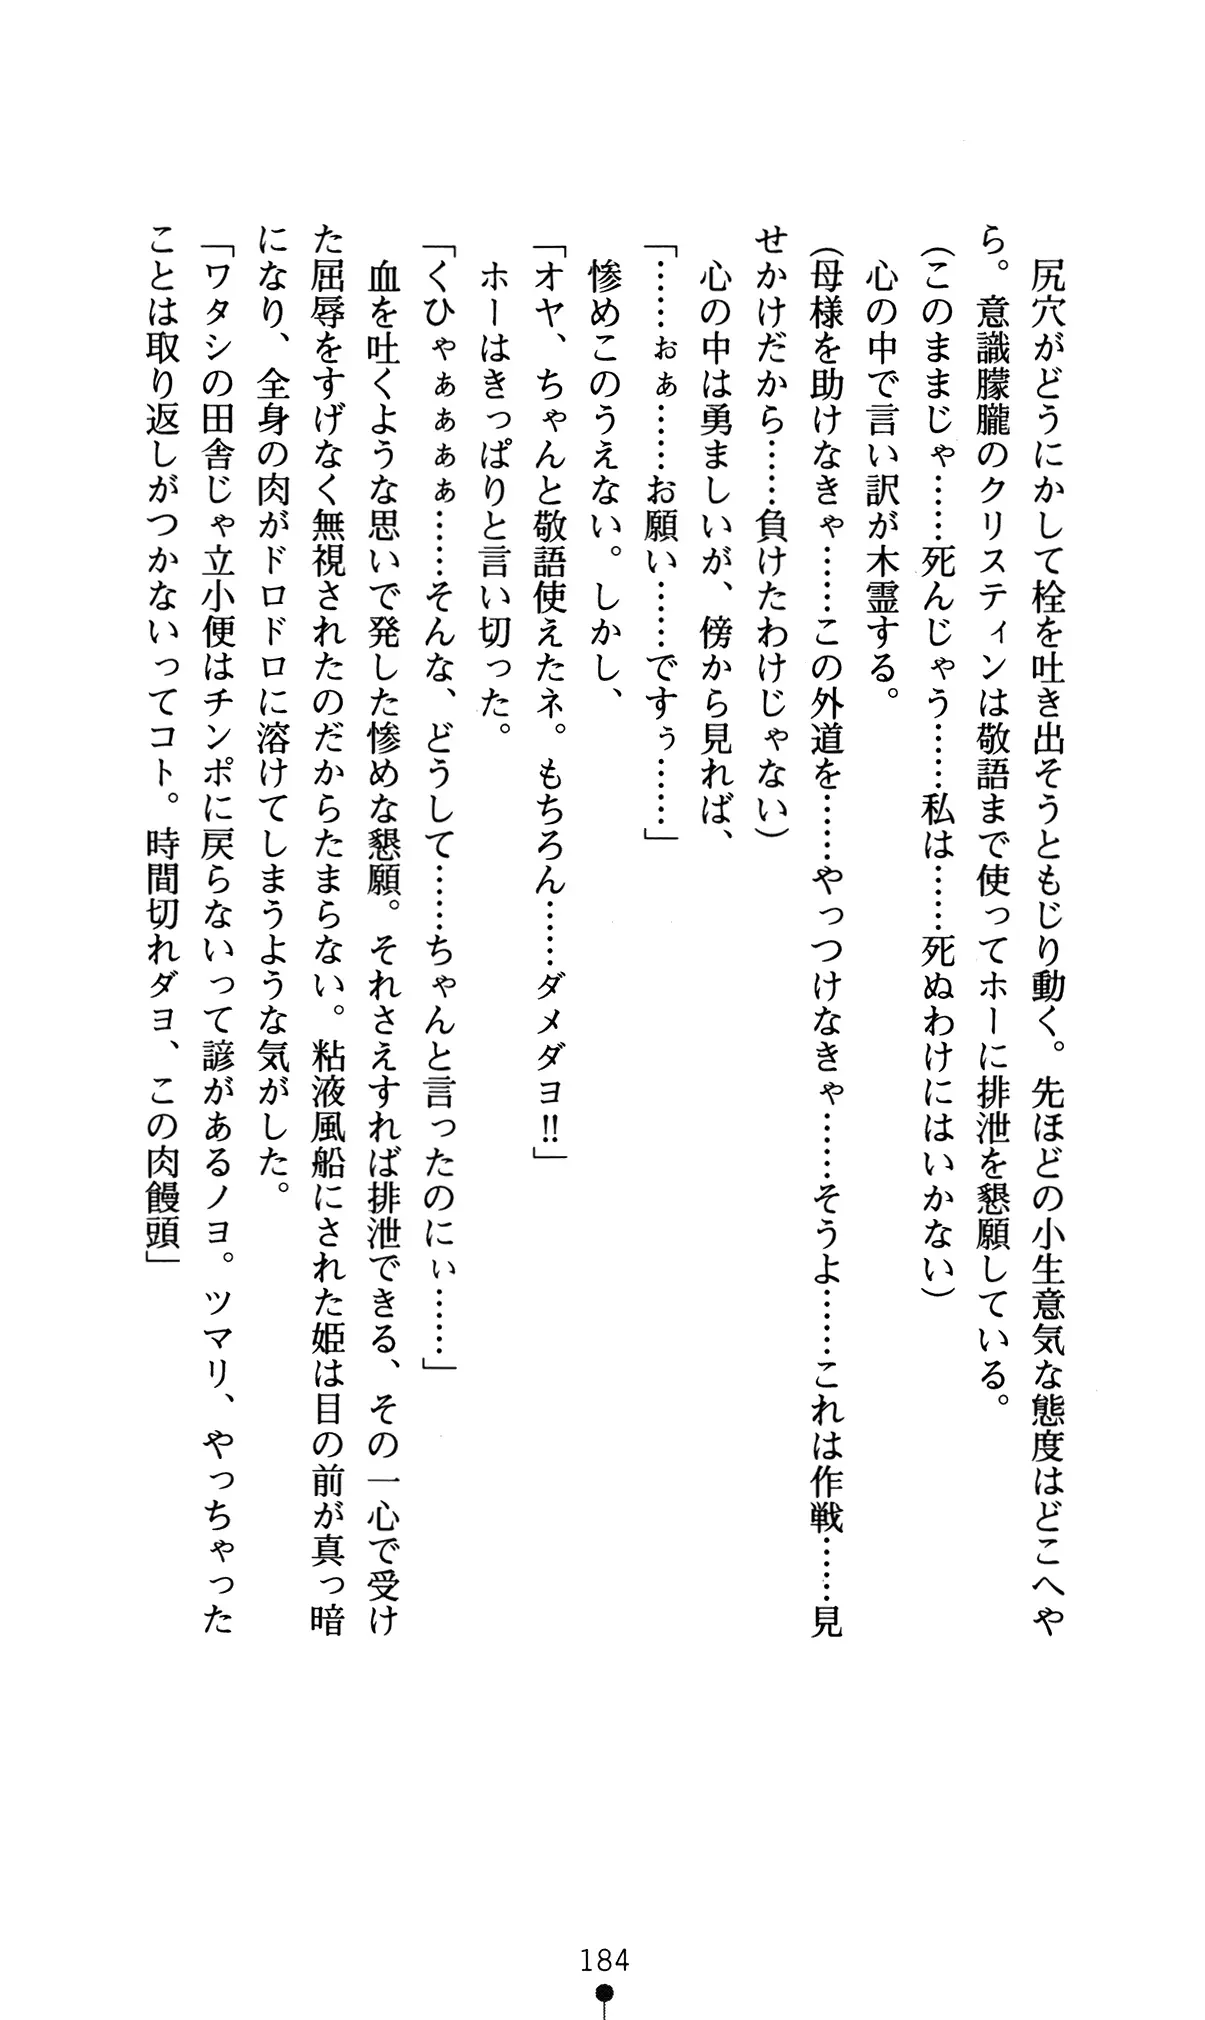 尻穴がどうにかして栓を吐き出そうともじり動く。先ほどの小生意気な態度はどこへや
ら。意識朦朧のクリスティンは敬語まで使ってホーに排泄を懇願している。
(このままじゃ……死んじゃう……私は……死ぬわけにはいかない)
心の中で言い訳が木霊する。
(母様を助けなきゃ……この外道を……やっつけなきゃ……そうよ……これは作戦……見
せかけだから……負けたわけじゃない)
心の中は勇ましいが、傍から見れば、
「……ぉぁ……お願い……ですぅ……」
惨めこのうえない。しかし、
「オヤ、ちゃんと敬語使えたネ。もちろん……ダメダヨ‼」
ホーはきっぱりと言い切った。
「くひゃぁぁぁぁ……そんな、どうして……ちゃんと言ったのにぃ……」
血を吐くような思いで発した惨めな懇願。それさえすれば排泄できる、その一心で受け
た屈辱をすげなく無視されたのだからたまらない。粘液風船にされた姫は目の前が真っ暗
になり、全身の肉がドロドロに溶けてしまうような気がした。
「ワタシの田舎じゃ立小便はチンポに戻らないって諺があるノヨ。ツマリ、やっちゃった
ことは取り返しがつかないってコト。時間切れダヨ、この肉饅頭」
184